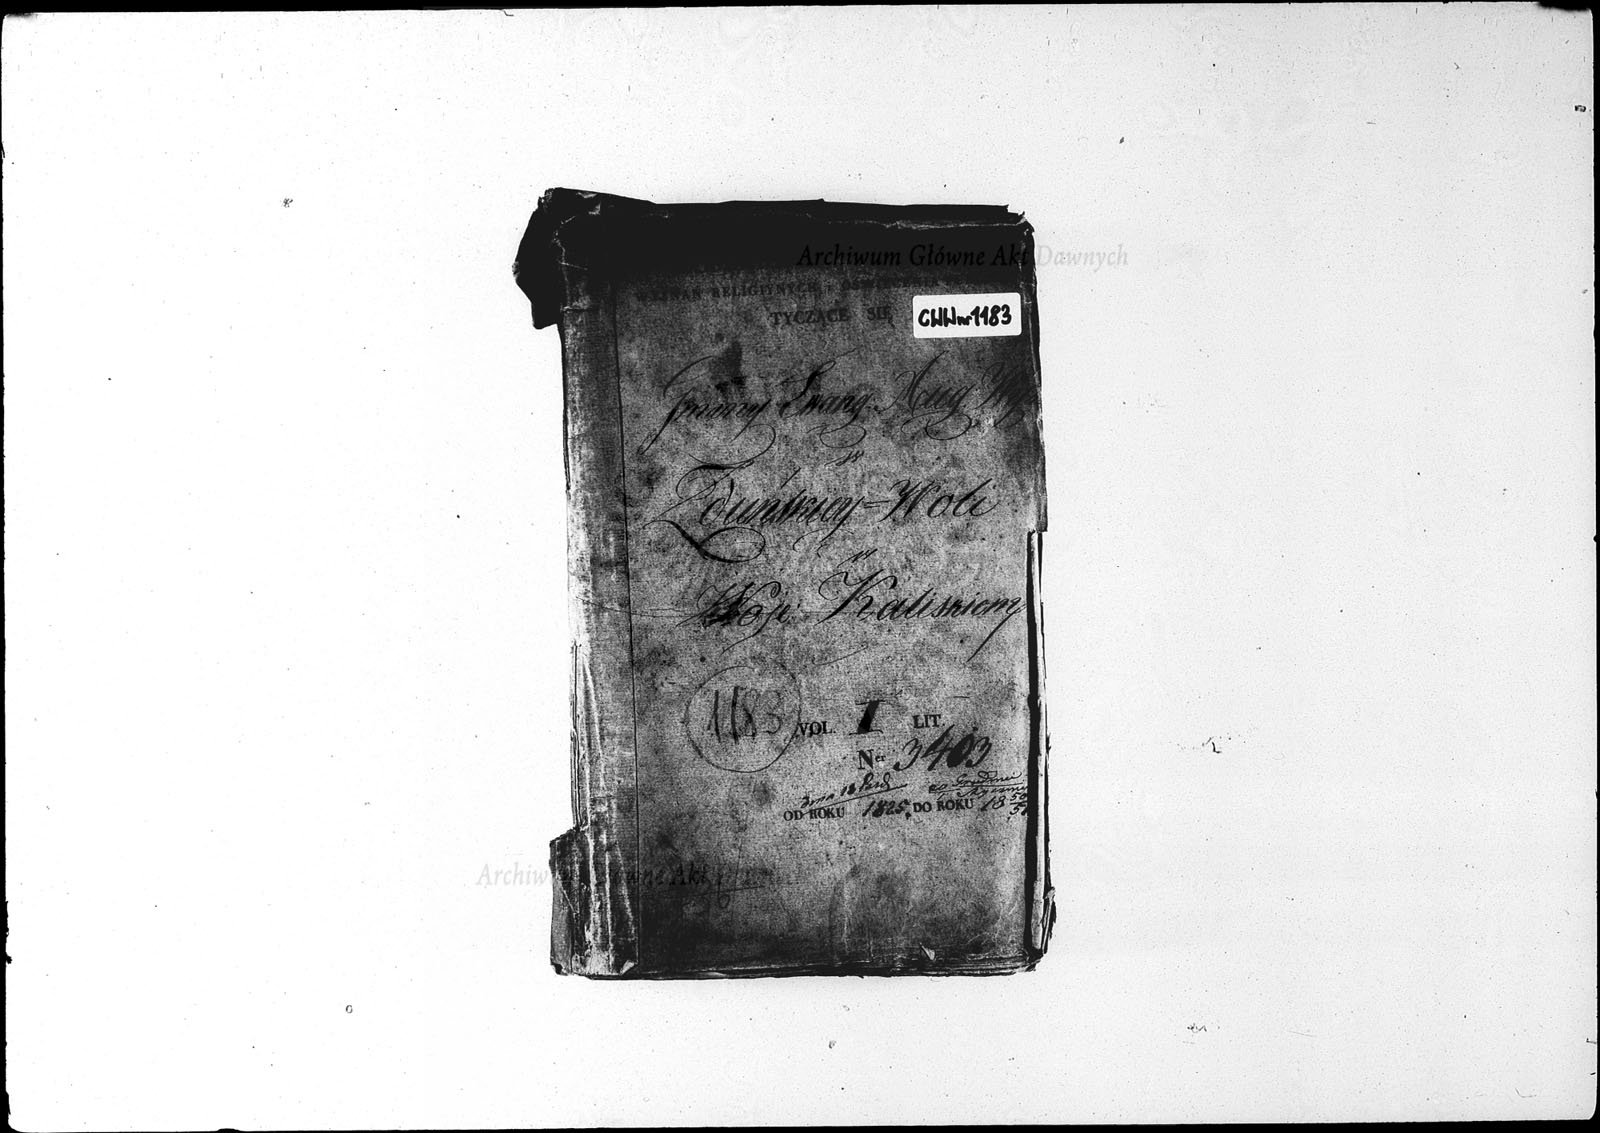 Archiwum Główne Akt Dawnych
WYZNAŃ RELIGIYNYCH I OŚWIECENIA
TYCZĄCE SIĘ
CWW nr 1183
Gminy Ewang. Aug. Wyz
w
Zduńskiey-Woli
w
Woje: Kaliskiem
1183
VOL I LIT.
Ner 3403
Grudnia
Stycznia
OD ROKU 1825, DO ROKU 18 50
51
Archiwum Główne Akt Dawnych